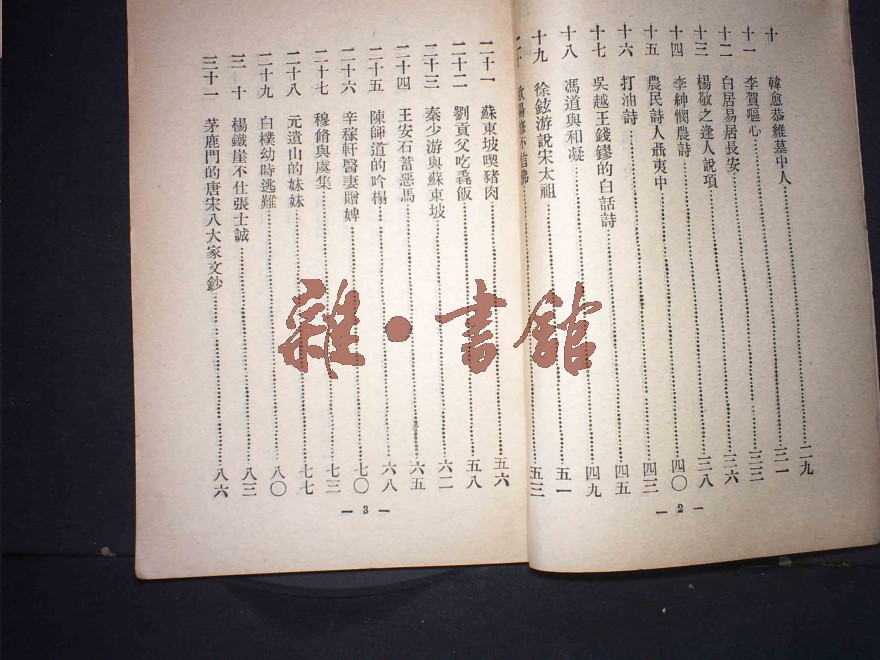 十 韓愈恭維墓中人 二九
十一 李賀嘔心 三一
十二 白居易居長安 三三
十三 楊敬之逢人說項 三六
十四 李紳憫農詩 三八
十五 農民詩人聶夷中 四〇
十六 打油詩 四三
十七 吳越王錢鏐的白話詩 四五
十八 馮道與和凝 四九
十九 徐鉉游說宋太祖 五一
二十 歐陽修不信佛 五三
— 2 —
二十一 蘇東坡喫豬肉 五六
二十二 劉貢父吃毳飯 五八
二十三 秦少游與蘇東坡 六二
二十四 王安石蓄惡馬 六五
二十五 陳師道的吟榻 六八
二十六 辛稼軒醫妻贈婢 七〇
二十七 穆脩與虞集 七三
二十八 元遺山的妹妹 七七
二十九 白樸幼時逃難 八〇
三十 楊鐵崖不仕張士誠 八三
三十一 茅鹿門的唐宋八大家文鈔 八六
— 3 —
雜·書館